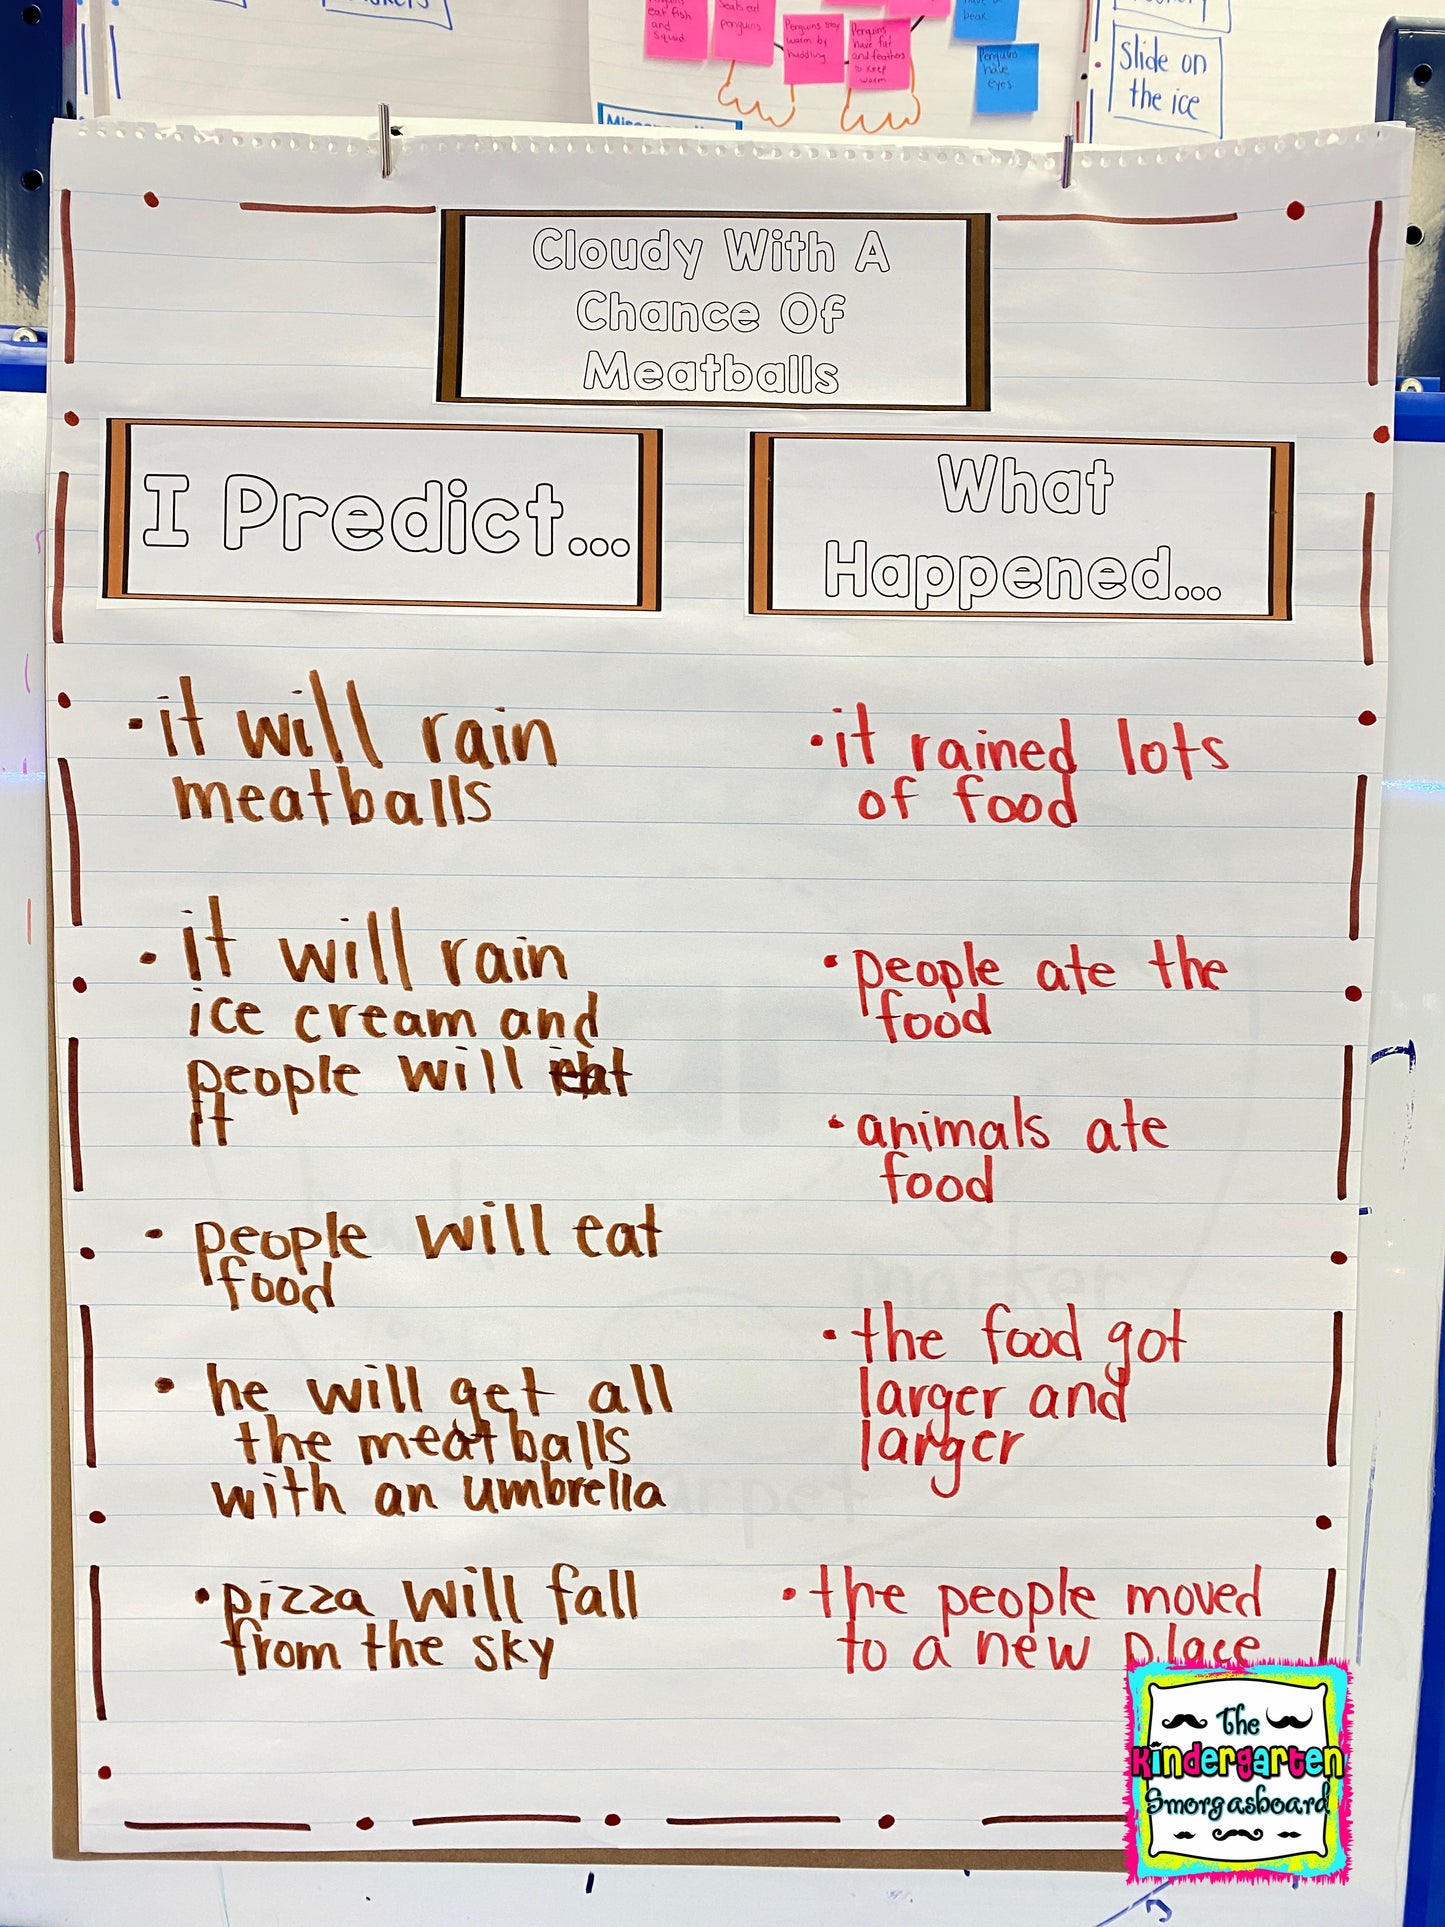 eat fish
and
squid
Seals eat
penguins
Penguins stay
warm by
huddling
Penguins
have fat
and feathers
to keep
warm
beak
Penguins
have
eyes
Slide on
the ice
Cloudy With A
Chance Of
Meatballs
I Predict...
What
Happened...
•it will rain
meatballs
• it will rain
ice cream and
people will eat
it
• people will eat
food
• he will get all
the meatballs
with an umbrella
•pizza will fall
from the sky
•it rained lots
of food
•people ate the
food
•animals ate
food
•the food got
larger and
larger
•the people moved
to a new place
The
Kindergarten
Smorgasboard